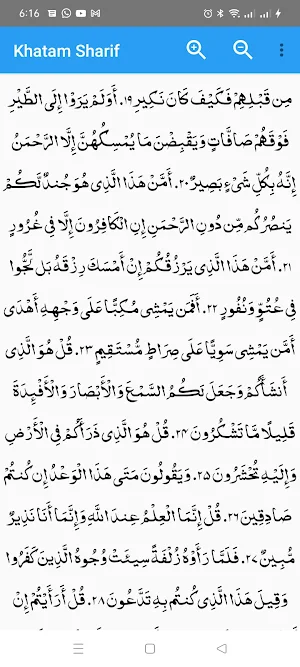 6:16
Khatam Sharif
مِن قَبْلِهِمْ فَكَيْفَ كَانَ نَكِيرِ ١٩. أَوَلَمْ يَرَوْا إِلَى الطَّيْرِ
فَوْقَهُمْ صَافَّاتٍ وَيَقْبِضْنَ مَا يُمْسِكُهُنَّ إِلَّا الرَّحْمَنُ
إِنَّهُ بِكُلِّ شَيْءٍ بَصِيرٌ ٢٠. أَمَّنْ هَذَا الَّذِي هُوَ جُندٌ لَّكُمْ
يَنصُرُكُم مِّن دُونِ الرَّحْمَنِ إِنِ الْكَافِرُونَ إِلَّا فِي غُرُورٍ
٢١. أَمَّنْ هَذَا الَّذِي يَرْزُقُكُمْ إِنْ أَمْسَكَ رِزْقَهُ بَل لَّجُّوا
فِي عُتُوٍّ وَنُفُورٍ ٢٢. أَفَمَن يَمْشِي مُكِبًّا عَلَى وَجْهِهِ أَهْدَى
أَمَّن يَمْشِي سَوِيًّا عَلَى صِرَاطٍ مُّسْتَقِيمٍ ٢٣. قُلْ هُوَ الَّذِي
أَنشَأَكُمْ وَجَعَلَ لَكُمُ السَّمْعَ وَالْأَبْصَارَ وَالْأَفْئِدَةَ
قَلِيلًا مَّا تَشْكُرُونَ ٢٤. قُلْ هُوَ الَّذِي ذَرَأَكُمْ فِي الْأَرْضِ
وَإِلَيْهِ تُحْشَرُونَ ٢٥. وَيَقُولُونَ مَتَى هَذَا الْوَعْدُ إِن كُنتُمْ
صَادِقِينَ ٢٦. قُلْ إِنَّمَا الْعِلْمُ عِندَ اللَّهِ وَإِنَّمَا أَنَا نَذِيرٌ
مُّبِينٌ ٢٧. فَلَمَّا رَأَوْهُ زُلْفَةً سِيئَتْ وُجُوهُ الَّذِينَ كَفَرُوا
وَقِيلَ هَذَا الَّذِي كُنتُم بِهِ تَدَّعُونَ ٢٨. قُلْ أَرَأَيْتُمْ إِنْ